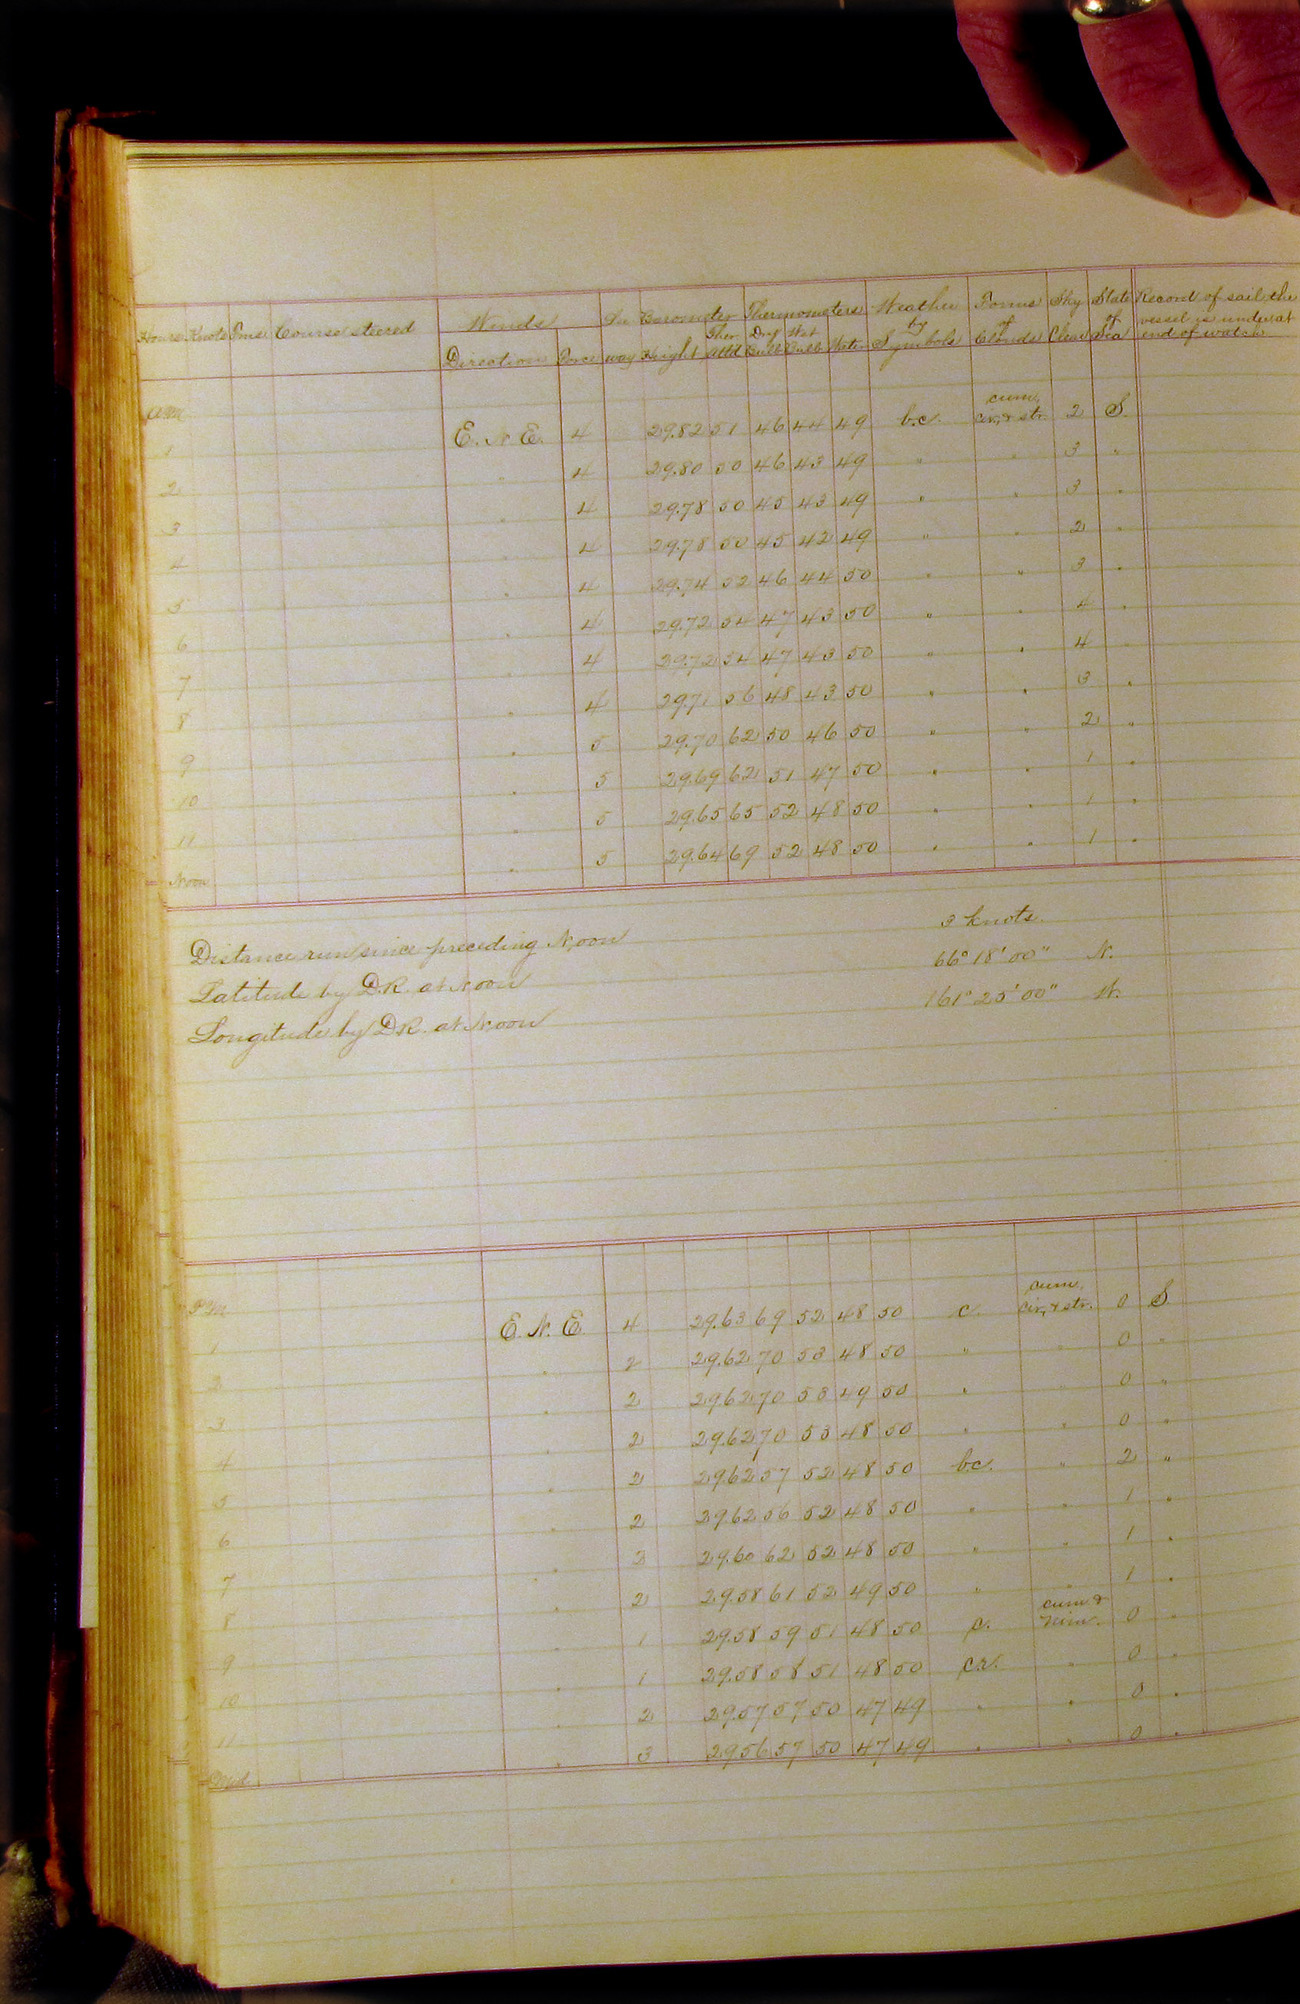 Hours Knots Fms Course steered Winds Lee Barometer Thermometers Weather Forms Sky State Record of sail the
Direction Force way Height Ther Att'd Dry Bulb Wet Bulb Water by Symbols of Clouds Clear of Sea vessel is under at end of watch
A.M.
1 E. N. E. 4 29.82 51 46 44 49 b.c. cum, cir, & str. 2 S.
2 " 4 29.80 50 46 43 49 " " 3 "
3 " 4 29.78 50 45 43 49 " " 3 "
4 " 4 29.78 50 45 42 49 " " 2 "
5 " 4 29.74 52 46 44 50 " " 3 "
6 " 4 29.72 54 47 43 50 " " 4 "
7 " 4 29.72 54 47 43 50 " " 4
8 " 4 29.71 56 48 43 50 " " 3 "
9 " 5 29.70 62 50 46 50 " " 2 "
10 " 5 29.69 62 51 47 50 " " 1 "
11 " 5 29.65 65 52 48 50 " " 1 "
Noon " 5 29.64 69 52 48 50 " " 1 "
Distance run since preceding Noon 3 knots.
Latitude by D.R. at Noon 66° 18' 00" N.
Longitude by D.R. at Noon 161° 25' 00" W.
P.M.
1 E. N. E. 4 29.63 69 52 48 50 c. cum, cir, & str. 0 S
2 " 2 29.62 70 53 48 50 " " 0 "
3 " 2 29.62 70 53 49 50 " 0 "
4 " 2 29.62 70 53 48 50 " " 0 "
5 " 2 29.62 57 52 48 50 b.c. " 2 "
6 " 2 29.62 56 52 48 50 " " 1 "
7 " 29.60 62 52 48 50 " " 1 "
8 " 2 29.58 61 52 49 50 " " 1 "
9 " 1 29.58 59 51 48 50 c. cum & nim. 0 "
10 " 1 29.58 58 51 48 50 c.r. " 0 "
11 " 2 29.57 57 50 47 49 " " 0 "
Mid. " 3 29.56 57 50 47 49 " " 0 "